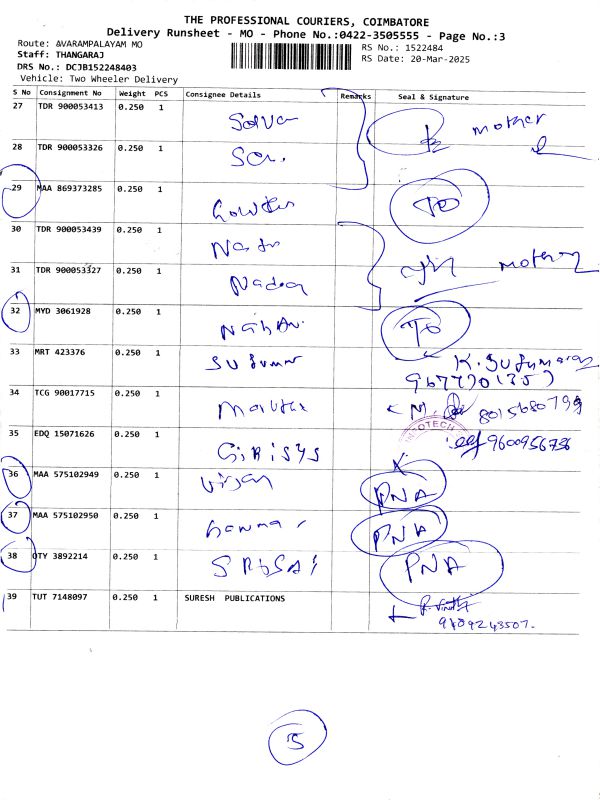 THE PROFESSIONAL COURIERS, COIMBATORE
Delivery Runsheet - MO - Phone No.:0422-3505555 - Page No.:3
Route: AVARAMPALAYAM MO
RS No.: 1522484
Staff: THANGARAJ
RS Date: 20-Mar-2025
DRS No.: DCJB152248403
Vehicle: Two Wheeler Delivery
S No Consignment No Weight PCS Consignee Details Remarks Seal & Signature
27 TDR 900053413 0.250 1 mother
28 TDR 900053326 0.250 1
29 MAA 869373285 0.250 1 TO
30 TDR 900053439 0.250 1
31 TDR 900053327 0.250 1 mother
32 MYD 3061928 0.250 1 TO
33 MRT 423376 0.250 1 Sukumar K. Sukumaran
34 TCG 90017715 0.250 1 8015680799
35 EDQ 15071626 0.250 1 GIRISYS INFOTECH 9600956736
36 MAA 575102949 0.250 1 PNA
37 MAA 575102950 0.250 1 PNA
38 OTY 3892214 0.250 1 PNA
39 TUT 7148097 0.250 1 SURESH PUBLICATIONS
9409243507.
5